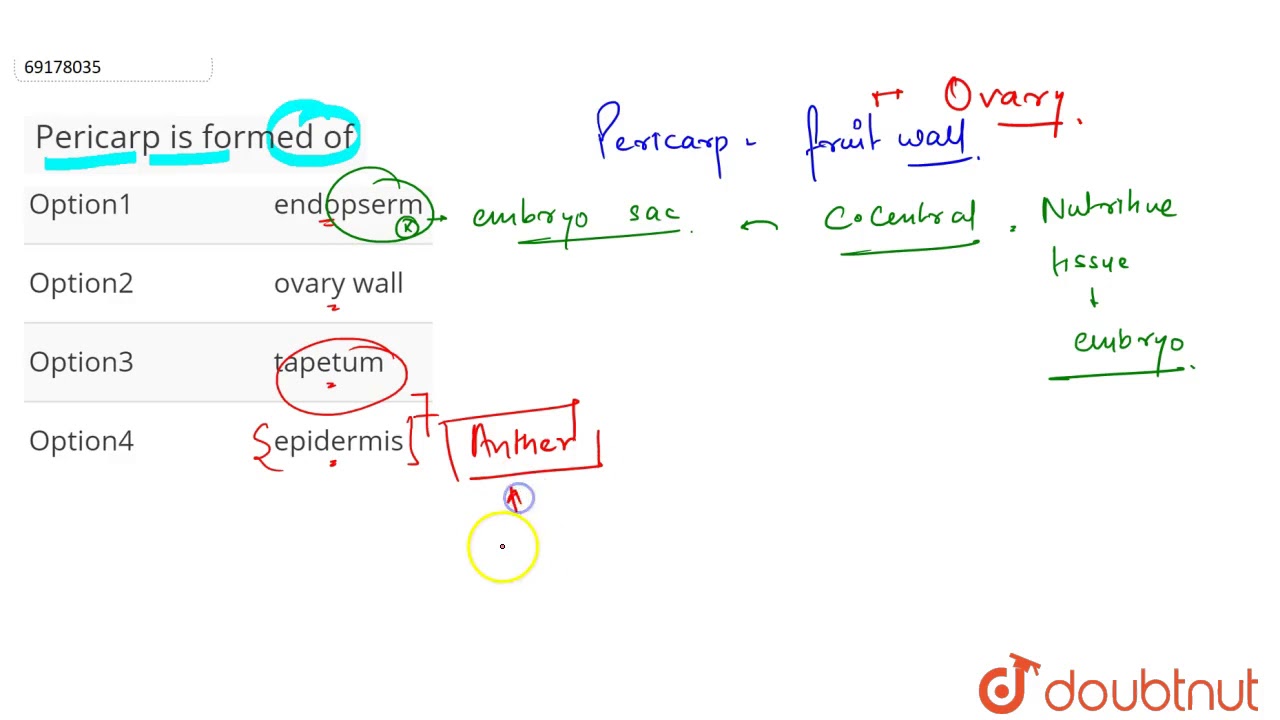 69178035
Pericarp is formed of
Option1 endopserm
Option2 ovary wall
Option3 tapetum
Option4 epidermis
Ovary.
Pericarp - fruit wall.
embryo sac. Central. Nutritive
tissue
embryo.
Anther
doubtnut